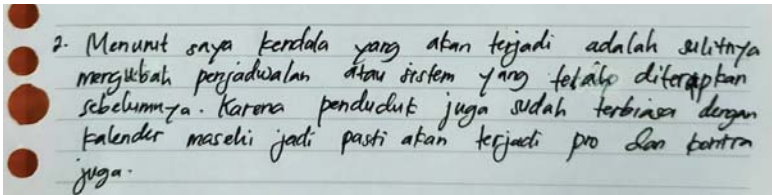 2. Menurut saya kendala yang akan terjadi adalah sulitnya
mengubah penjadwalan atau sistem yang telah diterapkan
sebelumnya. Karena penduduk juga sudah terbiasa dengan
kalender masehi jadi pasti akan terjadi pro dan kontra
juga.